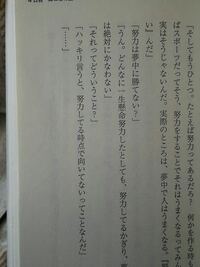 「そしてもうひとつ。たとえば努力ってあるだろ? 何かを作る時も
ばスポーツだってそう、努力をすることでそれはうまくなるってみん
実はそうじゃないんだ。実際のところは、夢中で人はうまくなる。
い』んだ」
「努力は夢中に勝てない?」
「うん。どんなに一生懸命努力したとしても、努力してるかぎり、
は絶対にかなわない」
「それってどういうこと?」
「ハッキリ言うと、努力してる時点で向いてないってことなんだ」
「……」